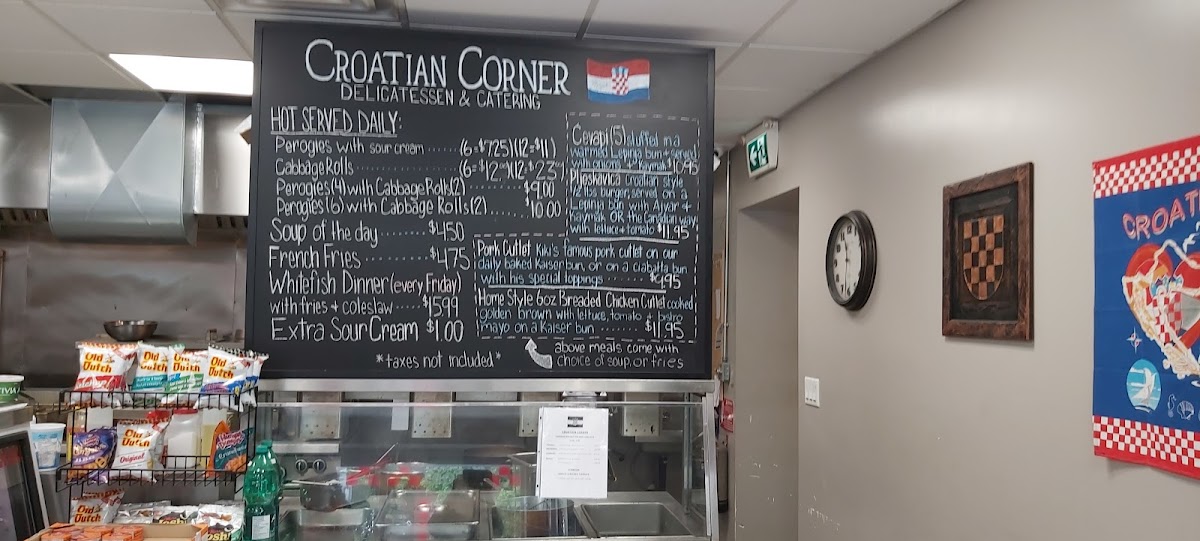 CROATIAN CORNER
DELICATESSEN & CATERING
HOT SERVED DAILY:
Perogies with sour cream ...... (6=$7.25)(12=$11)
Cabbage Rolls ............ (6=$12.
Perogies (4) with Cabbage Rolls (2) ........ $9.00
Perogies (6) with Cabbage Rolls (2) ...... $10.00
Soup of the day ....... $4.50
French Fries ......... $4.75
Whitefish Dinner (every Friday)
with fries & coleslaw ..... $15.99
Extra Sour Cream $1.00
*taxes not included*
Cevapi (5) stuffed in a
warmed Lepinja bun & served
with onions & Kajmak $10.95
Pljeskavica Croatian style
1/2 lbs burger, served on a
Lepinja bun with Ajvar &
kaymak OR the Canadian way
with lettuce & tomato $11.95
Pork Cutlet Kiki's famous pork cutlet on our
daily baked Kaiser bun, or on a ciabatta bun
with his special toppings ........ $9.95
Home Style 6oz Breaded Chicken Cutlet cooked
golden brown with lettuce, tomato & bistro
mayo on a Kaiser bun ........ $11.95
above meals come with
choice of soup, or fries
Old Dutch
Old Dutch
Old Dutch
Old Dutch
Old Dutch
Original
Old Dutch
CROAT